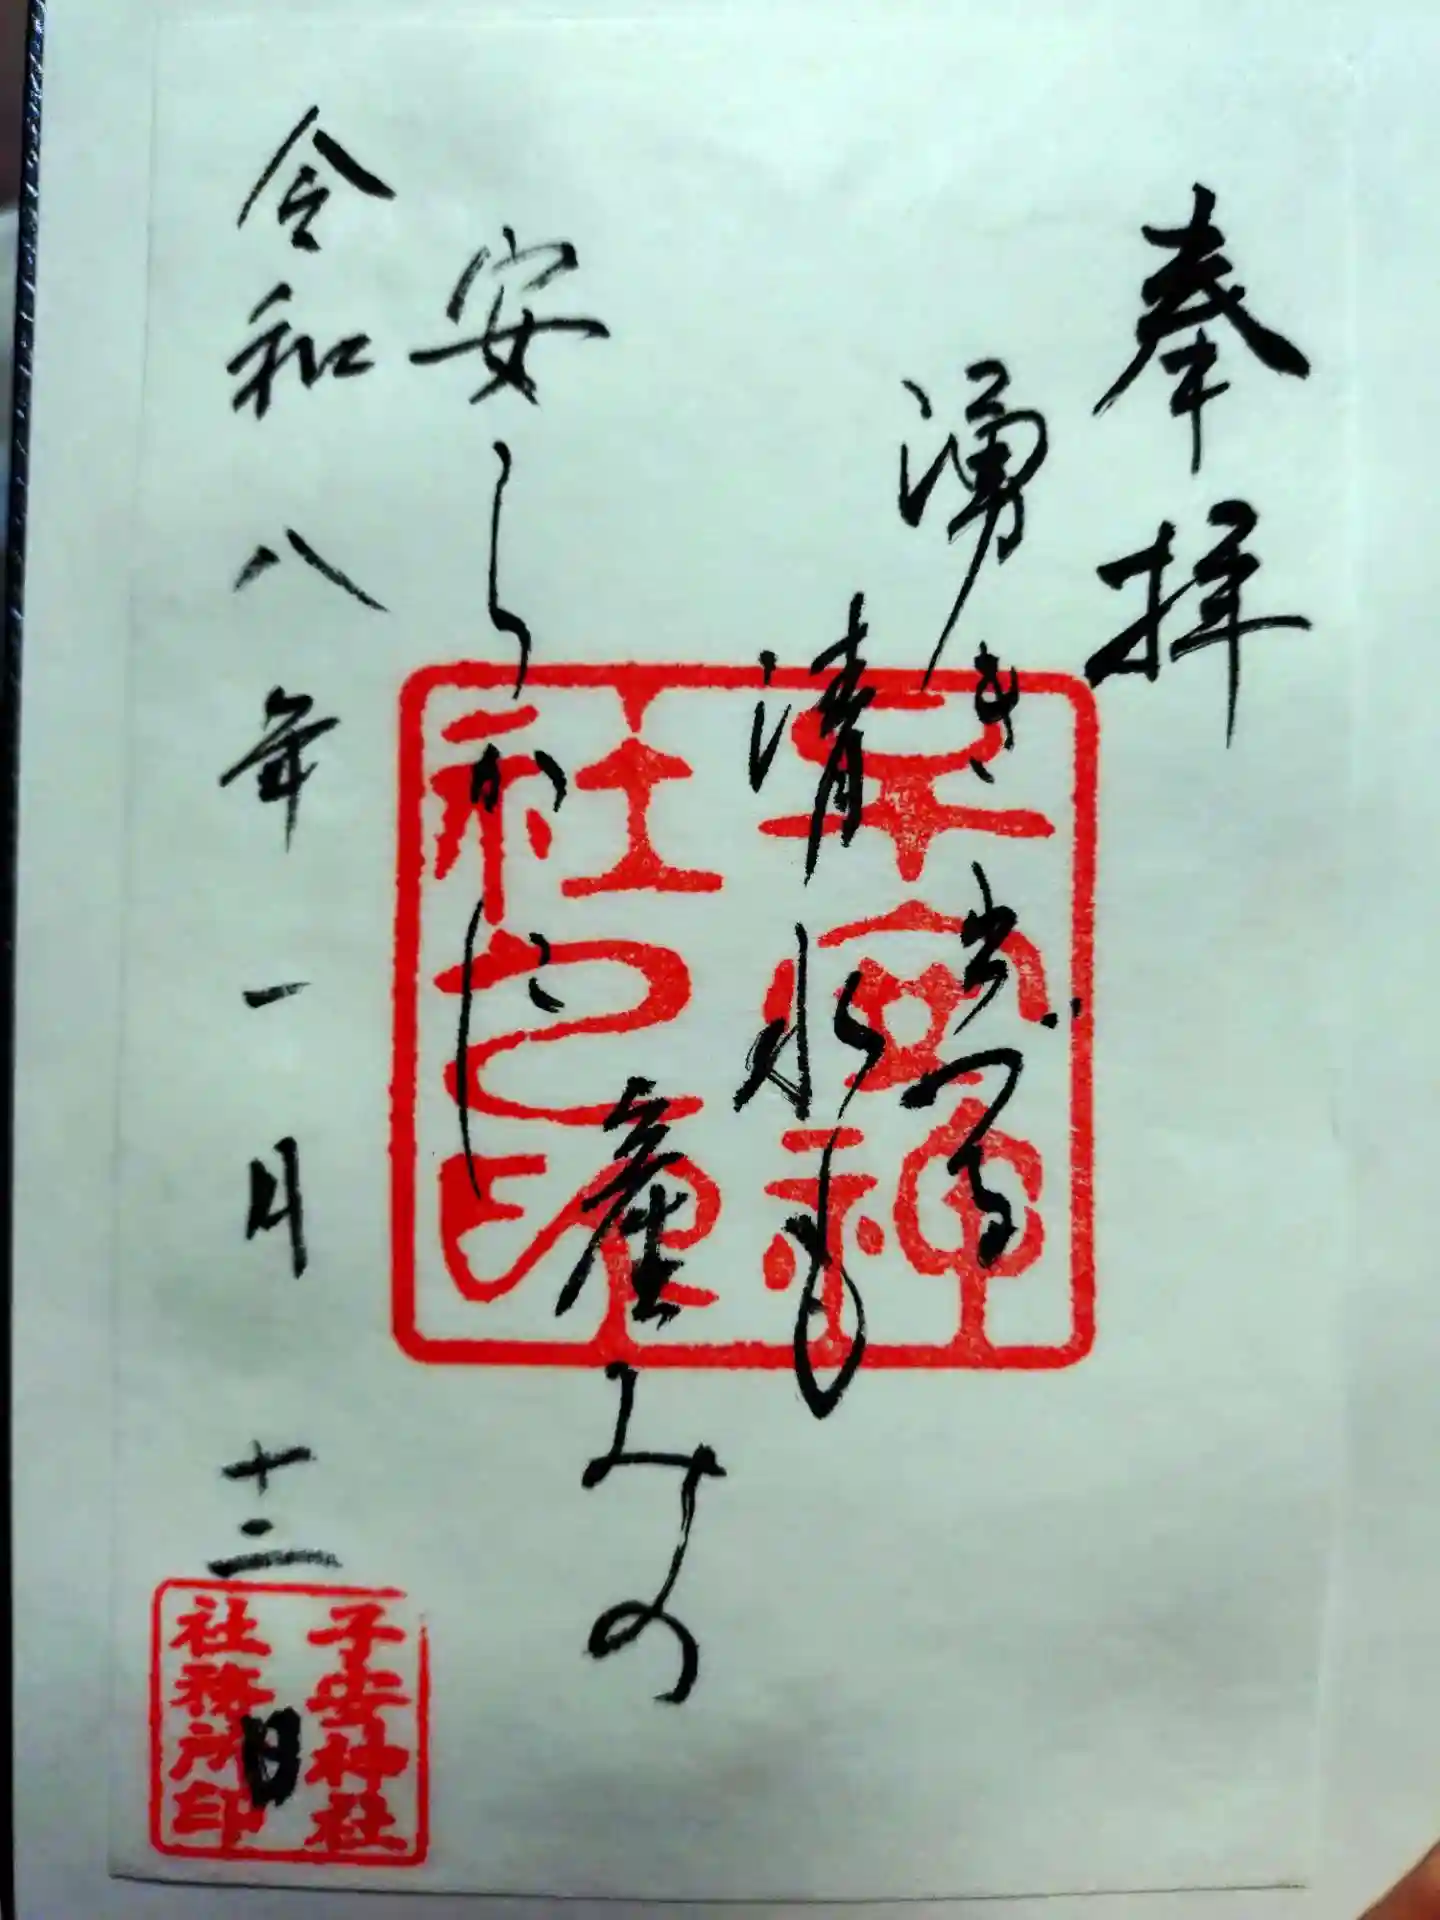 奉拝
湧き出づる
清水も
産みの
安らかに
令和八年一月十二日
子安神
社之印
子安神社
社務所印